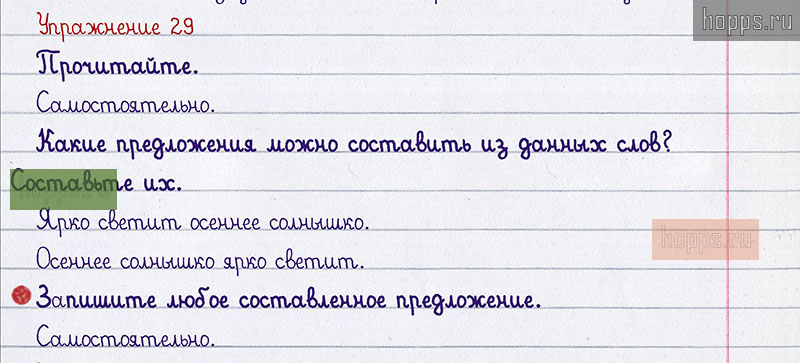 hopps.ru
Упражнение 29
Прочитайте.
Самостоятельно.
Какие предложения можно составить из данных слов?
Составьте их.
Ярко светит осеннее солнышко.
hopps.ru
Осеннее солнышко ярко светит.
Запишите любое составленное предложение.
Самостоятельно.